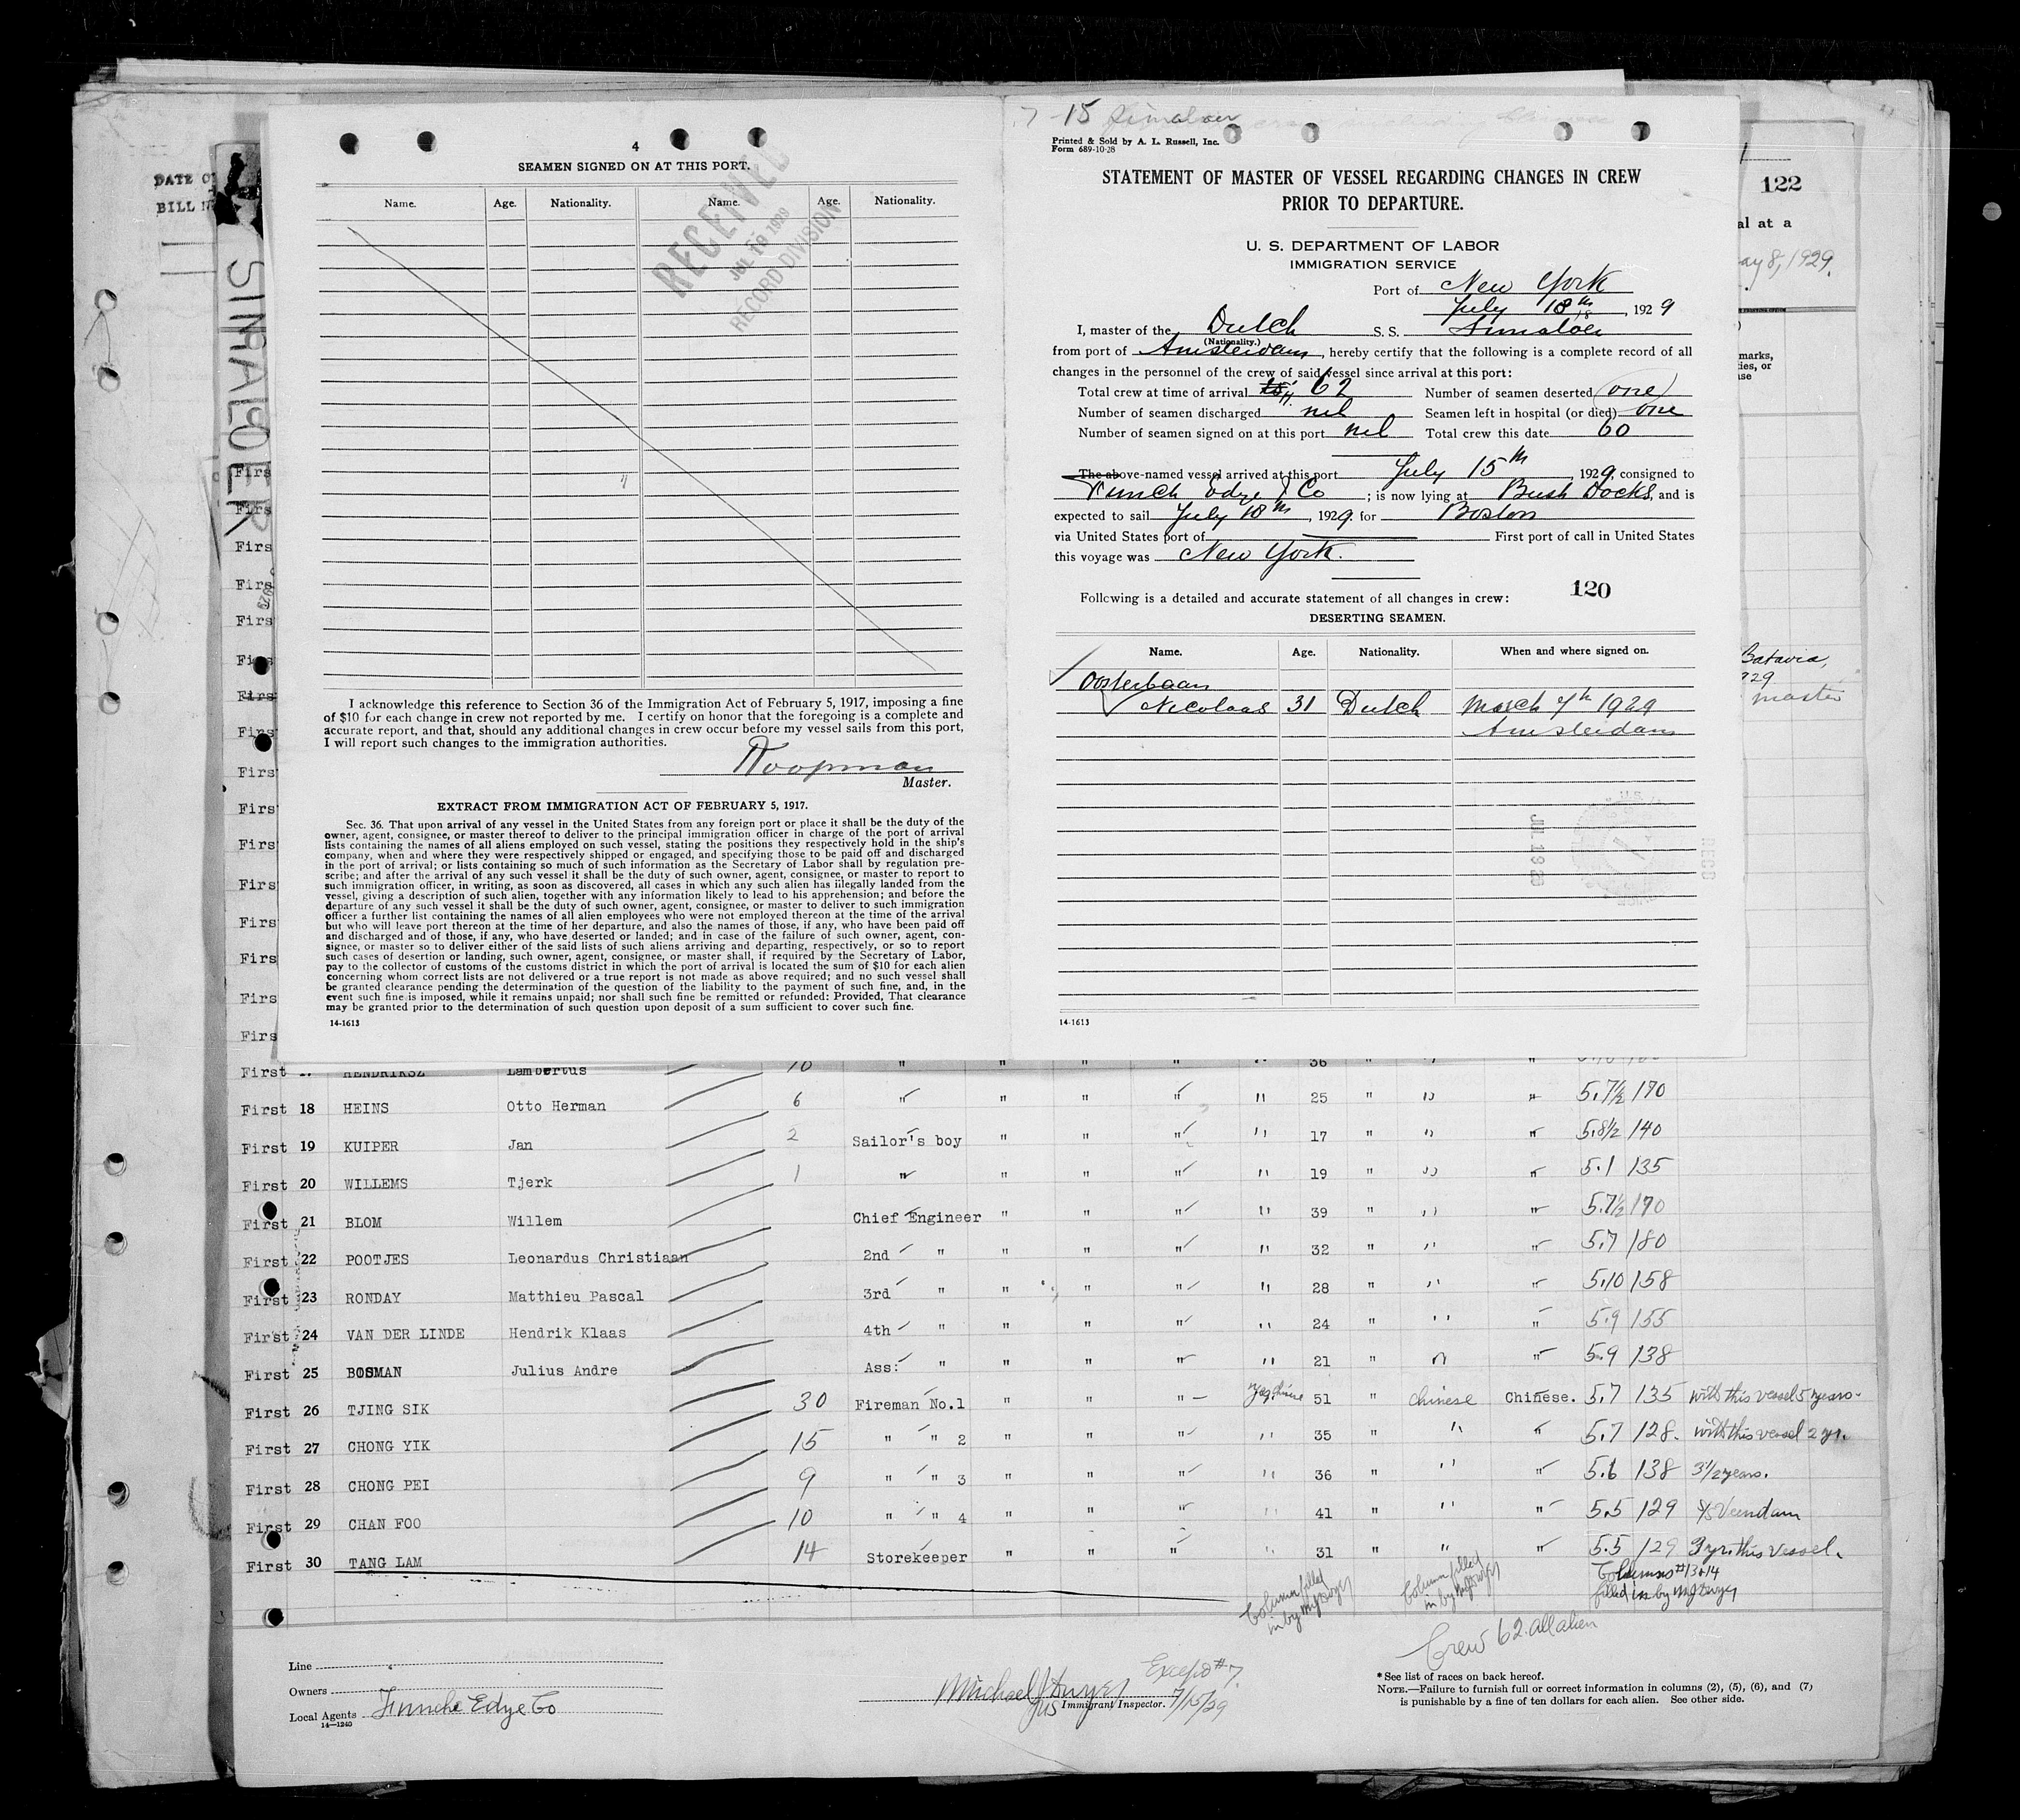 4
SEAMEN SIGNED ON AT THIS PORT.
Name. Age. Nationality. Name. Age. Nationality.
RECEIVED
JUL 19 1929
RECORD DIVISION
I acknowledge this reference to Section 36 of the Immigration Act of February 5, 1917, imposing a fine
of $10 for each change in crew not reported by me. I certify on honor that the foregoing is a complete and
accurate report, and that, should any additional changes in crew occur before my vessel sails from this port,
I will report such changes to the immigration authorities.
Koopman
Master.
EXTRACT FROM IMMIGRATION ACT OF FEBRUARY 5, 1917.
Sec. 36. That upon arrival of any vessel in the United States from any foreign port or place it shall be the duty of the
owner, agent, consignee, or master thereof to deliver to the principal immigration officer in charge of the port of arrival
lists containing the names of all aliens employed on such vessel, stating the positions they respectively hold in the ship's
company, when and where they were respectively shipped or engaged, and specifying those to be paid off and discharged
in the port of arrival; or lists containing so much of such information as the Secretary of Labor shall by regulation pre-
scribe; and after the arrival of any such vessel it shall be the duty of such owner, agent, consignee, or master to report to
such immigration officer, in writing, as soon as discovered, all cases in which any such alien has illegally landed from the
vessel, giving a description of such alien, together with any information likely to lead to his apprehension; and before the
departure of any such vessel it shall be the duty of such owner, agent, consignee, or master to deliver to such immigration
officer a further list containing the names of all alien employees who were not employed thereon at the time of the arrival
but who will leave port thereon at the time of her departure, and also the names of those, if any, who have been paid off
and discharged and of those, if any, who have deserted or landed; and in case of the failure of such owner, agent, con-
signee, or master so to deliver either of the said lists of such aliens arriving and departing, respectively, or so to report
such cases of desertion or landing, such owner, agent, consignee, or master shall, if required by the Secretary of Labor,
pay to the collector of customs of the customs district in which the port of arrival is located the sum of $10 for each alien
concerning whom correct lists are not delivered or a true report is not made as above required; and no such vessel shall
be granted clearance pending the determination of the question of the liability to the payment of such fine, and, in the
event such fine is imposed, while it remains unpaid; nor shall such fine be remitted or refunded: Provided, That clearance
may be granted prior to the determination of such question upon deposit of a sum sufficient to cover such fine.
14-1613
7-15 Simaloer
Printed & Sold by A. L. Russell, Inc.
Form 689-10-28
STATEMENT OF MASTER OF VESSEL REGARDING CHANGES IN CREW
PRIOR TO DEPARTURE.
U. S. DEPARTMENT OF LABOR
IMMIGRATION SERVICE
Port of New York
July 18th, 1929
I, master of the Dutch S. S. Simaloer
(Nationality.)
from port of Amsterdam, hereby certify that the following is a complete record of all
changes in the personnel of the crew of said vessel since arrival at this port:
Total crew at time of arrival 62 Number of seamen deserted one
Number of seamen discharged nil Seamen left in hospital (or died) one
Number of seamen signed on at this port nil Total crew this date 60
The above-named vessel arrived at this port July 15th, 1929, consigned to
Funch Edye & Co; is now lying at Bush Docks, and is
expected to sail July 18th, 1929 for Boston
via United States port of First port of call in United States
this voyage was New York.
120
Following is a detailed and accurate statement of all changes in crew:
DESERTING SEAMEN.
Name. Age. Nationality. When and where signed on.
Oosterbaan
Nicolaas 31 Dutch March 7th 1929
Amsterdam
14-1613
122
al at a
ay 8, 1929.
marks,
ties, or
Batavia,
929
master
DATE O
BILL N
SIMALOER
First HENDRIKSZ Lambertus 10 " " " " " 36 " " "
First 18 HEINS Otto Herman 6 " " " " " 25 " " " 5.7½ 170
First 19 KUIPER Jan 2 Sailor's boy " " " " 17 " " " 5.8½ 140
First 20 WILLEMS Tjerk 1 " " " " " 19 " " " 5.1 135
First 21 BLOM Willem Chief Engineer " " " " 39 " " " 5.7½ 170
First 22 POOTJES Leonardus Christiaan 2nd " " " " " 32 " " " 5.7 180
First 23 RONDAY Matthieu Pascal 3rd " " " " " 28 " " " 5.10 158
First 24 VAN DER LINDE Hendrik Klaas 4th " " " " " 24 " " " 5.9 155
First 25 BOSMAN Julius Andre Ass: " " " " " 21 " " " 5.9 138
First 26 TJING SIK 30 Fireman No.1 " " " Yes, Chinese 51 " Chinese Chinese. 5.7 135 with this vessel 5 years.
First 27 CHONG YIK 15 " " 2 " " " " 35 " " " 5.7 128. with this vessel 2 yr.
First 28 CHONG PEI 9 " " 3 " " " " 36 " " " 5.6 138 3½ years.
First 29 CHAN FOO 10 " " 4 " " " " 41 " " " 5.5 129 S/S Veendam
First 30 TANG LAM 14 Storekeeper " " " " 31 " " " 5.5 129 3 yr. this vessel.
Column filled
in by MJ Dwyer
Column filled
in by MJ Dwyer
Columns #13+14
filled in by MJ Dwyer
Crew 62. all alien
Line
Owners
Local Agents Funche Edye Co
14—1240
Except #7
Michael J Dwyer
Immigrant Inspector. 7/15/29
* See list of races on back hereof.
NOTE.—Failure to furnish full or correct information in columns (2), (5), (6), and (7)
is punishable by a fine of ten dollars for each alien. See other side.